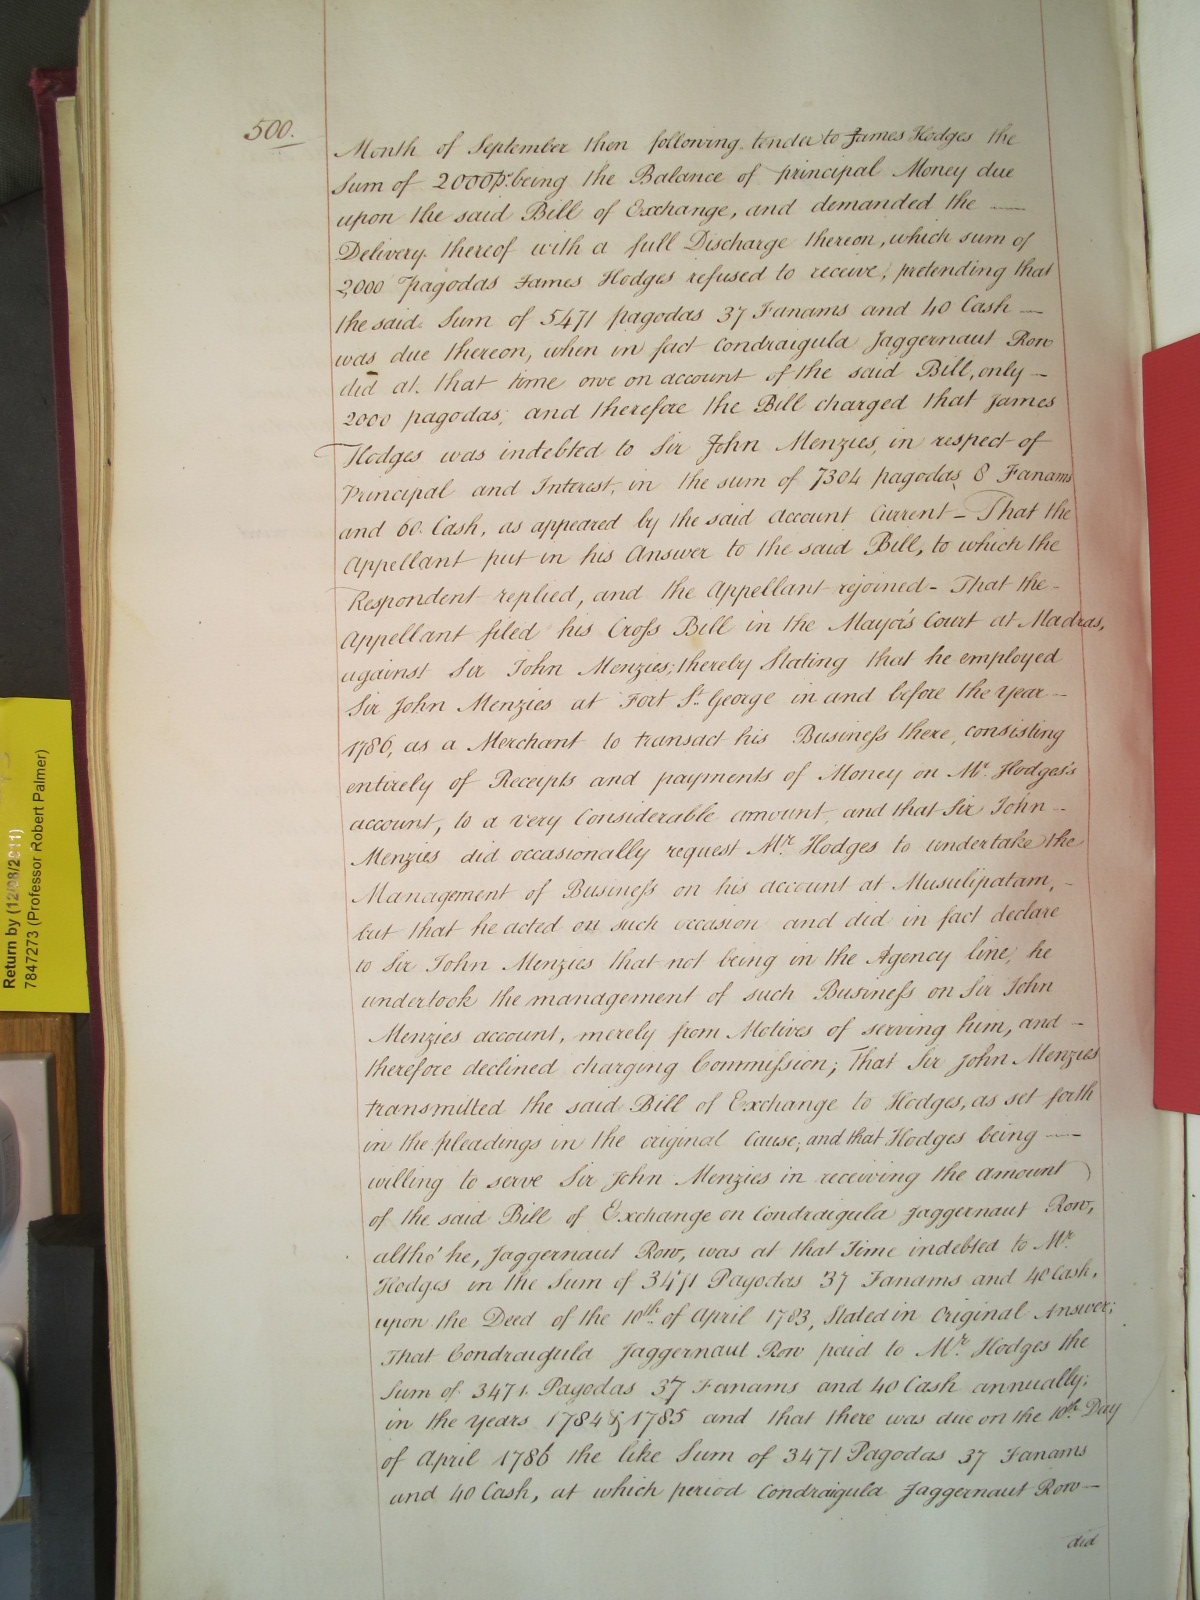 500.
Month of September then following tender to James Hodges the
Sum of 2000 p.s being the Balance of principal Money due
upon the said Bill of Exchange, and demanded the —
Delivery thereof with a full Discharge thereon, which sum of
2,000 Pagodas James Hodges refused to receive, pretending that
the said Sum of 5471 pagodas 37 Fanams and 40 Cash —
was due thereon, when in fact Condraigula Jaggernaut Row
did at that time owe on account of the said Bill, only —
2000 pagodas; and therefore the Bill charged that James
Hodges was indebted to Sir John Menzies, in respect of
Principal and Interest, in the sum of 7304 pagodas, 8 Fanams
and 60 Cash, as appeared by the said Account Current — That the
Appellant put in his Answer to the said Bill, to which the
Respondent replied, and the Appellant rejoined — That the —
Appellant filed his Cross Bill in the Mayor's Court at Madras,
against Sir John Menzies; thereby Stating that he employed
Sir John Menzies at Fort St. George in and before the Year —
1786, as a Merchant to transact his Business there, consisting
entirely of Receipts and payments of Money on Mr. Hodges's
account, to a very Considerable amount, and that Sir John —
Menzies did occasionally request Mr. Hodges to undertake the
Management of Business on his account at Musulipatam, —
but that he acted on such occasion and did in fact declare
to Sir John Menzies that not being in the Agency line, he
undertook the management of such Business on Sir John
Menzies account, merely from Motives of serving him, and —
therefore declined charging Commission; That Sir John Menzies
transmitted the said Bill of Exchange to Hodges, as set forth
in the pleadings in the original Cause; and that Hodges being —
willing to serve Sir John Menzies in receiving the amount
of the said Bill of Exchange on Condraigula Jaggernaut Row,
altho' he, Jaggernaut Row, was at that Time indebted to Mr.
Hodges in the Sum of 3471 Pagodas 37 Fanams and 40 Cash,
upon the Deed of the 10th. of April 1783, Stated in Original Answer;
That Condraigula Jaggernaut Row paid to Mr. Hodges the
Sum of 3471 Pagodas 37 Fanams and 40 Cash annually;
in the Years 1784 & 1785 and that there was due on the 10th. Day
of April 1786 the like Sum of 3471 Pagodas 37 Fanams
and 40 Cash, at which period Condraigula Jaggernaut Row —
did
Return by (12/08/2011)
7847273 (Professor Robert Palmer)